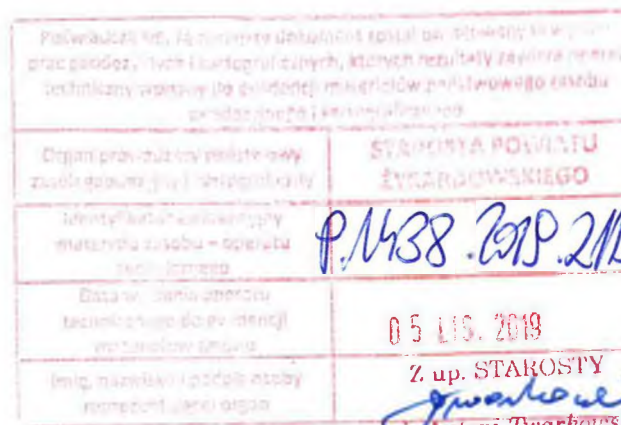 Poświadcza się, że niniejszy dokument został opracowany w wyniku
prac geodezyjnych i kartograficznych, których rezultaty zawiera operat
techniczny wpisany do ewidencji materiałów państwowego zasobu
geodezyjnego i kartograficznego
Organ prowadzący państwowy
zasób geodezyjny i kartograficzny
STAROSTA POWIATU
ŻYRARDOWSKIEGO
Identyfikator ewidencyjny
materiału zasobu – operatu
technicznego
P.1438.2019.211
Data wpisania operatu
technicznego do ewidencji
materiałów zasobu
05 LIS. 2019
Imię, nazwisko i podpis osoby
reprezentującej organ
Z up. STAROSTY